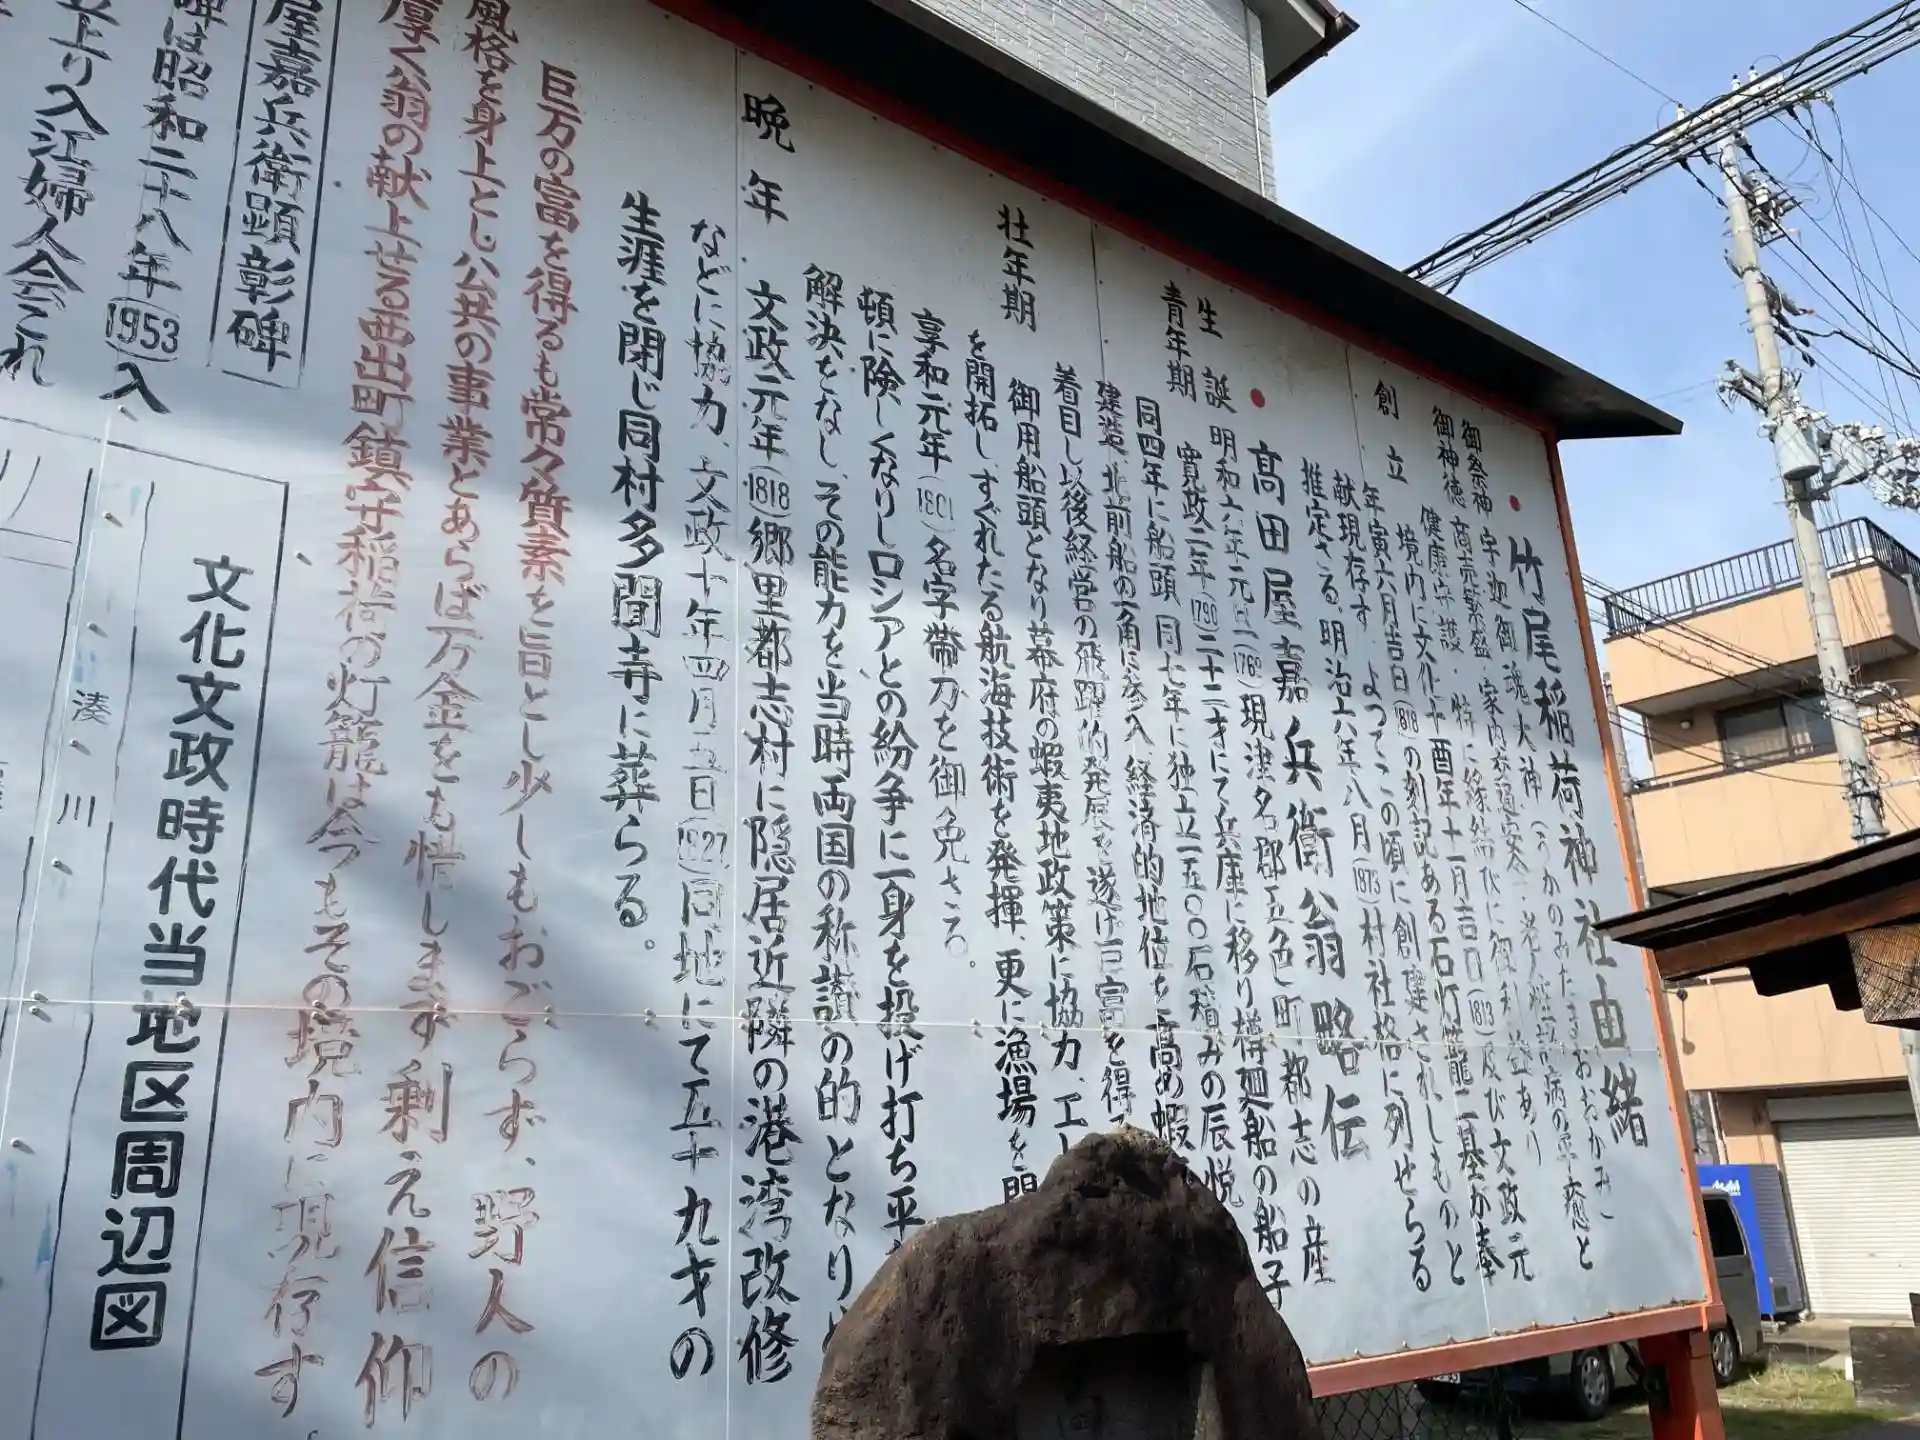 竹尾稲荷神社由緒
御祭神 宇迦御魂大神(うかのみたまおおかみ)
御神徳 商売繁盛 家内
健康守護 特に縁結びに御利益あり
創立 境内に文化十酉年十一月吉日(1813)及び文政元
年寅六月吉日(1818)の刻記ある石灯籠二基が奉
献現存す よってこの頃に創建されしものと
推定さる 明治六年八月(1873)村社格に列せらる
高田屋嘉兵衛翁略伝
生誕 明和六年元旦(1769)現津名郡五色町都志の産
青年期 寛政二年(1790)二十二才にて兵庫に移り樽廻船の船子
同四年に船頭 同七年に独立一五〇〇石積みの辰悦
建造、北前船の一角に参入 経済的地位を高め蝦
着目し以後経営の飛躍的発展を遂げ巨富を得
壮年期 御用船頭となり幕府の蝦夷地政策に協力、エ
を開拓し、すぐれたる航海技術を発揮、更に漁場を開
享和元年(1801)名字帯刀を御免さる。
頓に険しくなりしロシアとの紛争に一身を投げ打ち平
解決をなし、その能力を当時両国の称讃の的となりと
晩年 文政元年(1818)郷里都志村に隠居近隣の港湾改修
などに協力、文政十年四月五日(1827)同地にて五十九才の
生涯を閉じ同村多聞寺に葬らる。
巨万の富を得るも常々質素を旨とし少しもおごらず、野人の
風格を身上とし公共の事業とあらば万金をも惜しまず剰え信仰
厚く翁の献上せる西出町鎮守稲荷の灯籠は今もその境内に現存す。
屋嘉兵衛顕彰碑
碑は昭和二十八年(1953)入
立上り入江婦人会これ
文化文政時代当地区周辺図
湊川